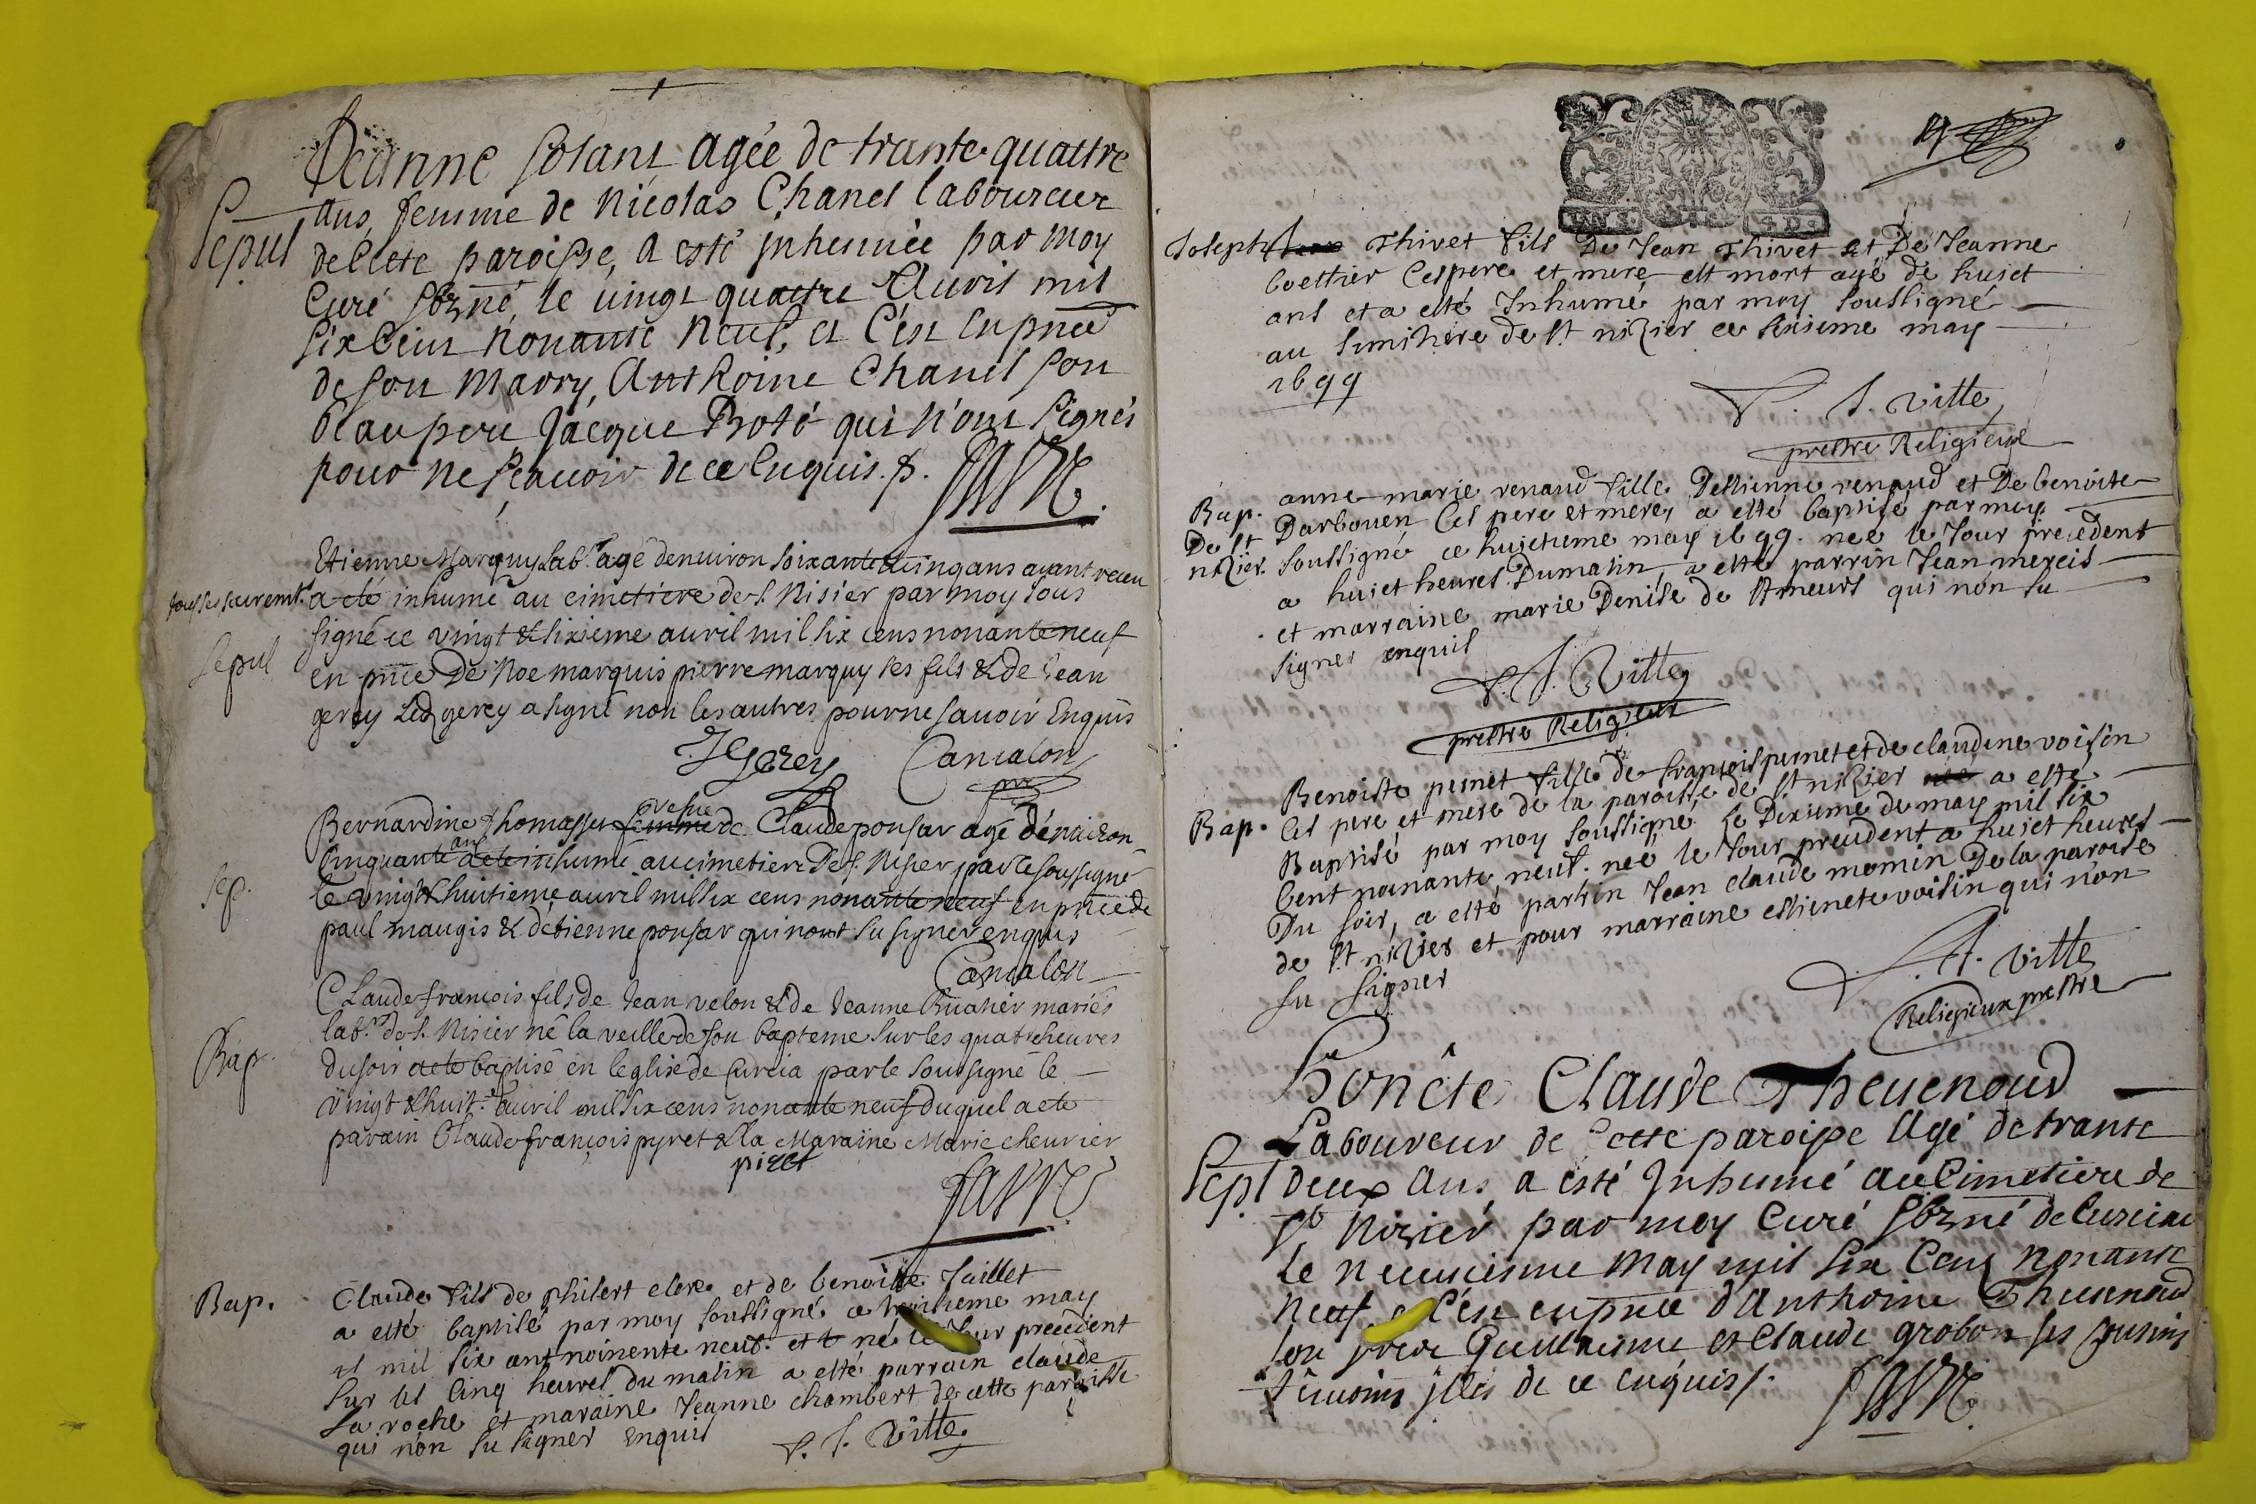 Jeanne Solant agée de trante quattre
Sepul ans, femme de Nicolas Chanel laboureur
de Cette paroisse, a esté jnhumée par moy
Curé sbzné, le vingt quattre Auvril mil
six Cent nonante neuf, et C'est en pnce
de son marry, Anthoine Chanel son
beau pere Jacque Boté qui n'ont signés
pour ne sçauoir de ce enquis.
Etienne Marquy lab.r agé denuiron soixante & cinq ans ayant receu
tous ses sacremt. a eté inhumé au cimetiere de S. Nisier par moy sous
signé ce vingt & sixieme auril mil six cens nonante neuf
Sepul
en pnce De Noe marquis pierre marquy ses fils & de Jean
gerey Led gerey a signé non les autres pour ne sauoir Enquis
J Gerey Cancalon
pre
vefue
Bernardine thomasset femme de Claude ponsar agé dénuiron
ans
Cinquante a eté inhumé au cimetiere De S. Nisier par le soussigné
sep.
le vingt & huitieme auril mil six cens nonante neuf en pnce de
paul maugis & détienne ponsar qui nont su signer enquis
Cancalon
Claude françois fils de Jean velon & de Jeanne mariés
lab.rs de S. Nisier né la veille de son bapteme sur les quatre heures
Bap. du soir a eté baptisé en leglise de Curcia par le Soussigné le
vingt & huit.e auril mil six cens nonante neuf duquel a eté
parain Claude françois pyret & la Maraine Marie cheurier
piret
Favre
Bap. Claude fils de philert clere et de benoiste Jaillet
a esté baptisé par moy soussigné ce may
mil six cent noinente neuf. et né le Jour precedent
sur les Cinq heures du matin a esté parrain claude
La roche et maraine Jeanne chambert de cette paroisse
qui non su signer Enquis
F. J. Vitte
Joseph Thivet fils De Jean Thivet et De Jeanne
Ces pere et mere est mort agé de huict
ans et a esté Inhumé par moy soussigné
au simithere de St nizier ce sixieme may
1699
F. J. Vitte
prestre Religieux
anne marie renaud fille Destienne renaud et De benoiste
Bap. Darbouen Ces pere et mere, a esté baptisé par moy
De St soussigné ce huictieme may 1699. neé le Jour precedent
nizier. a huict heures Dumatin, a esté parrin Jean mercis
et marraine marie Denise de St meurs qui non su
signer enquis
F. J. Vitte
prestre Religieux
Benoiste pernet fille de françois pernet et de claudine voisin
Ces pere et mere de la paroisse de St nizier a esté
Bap. Baptisé par moy soussigné le Dixieme de may mil six
Cent nonante neuf. neé le Jour precedent a huict heures
Du soir, a esté parrin Jean claude momin De la paroise
de St nizier et pour marraine estienete voisin qui non
su signer
F. J. Vitte
Religieux prestre
Honête Claude Theuenoud
Laboureur de Cette paroisse Agé de trante
Sepl deux Ans a esté Jnhumé au Cimetiere de
St Nizier par moy Curé sbzné de Curciat
le neuuiesme May mil six Cens nonante
neuf et C'est en pnce d'Anthoine Theuenoud
son frere Guillaume et Claude grobon ses cousins
temoins jlles de ce enquis